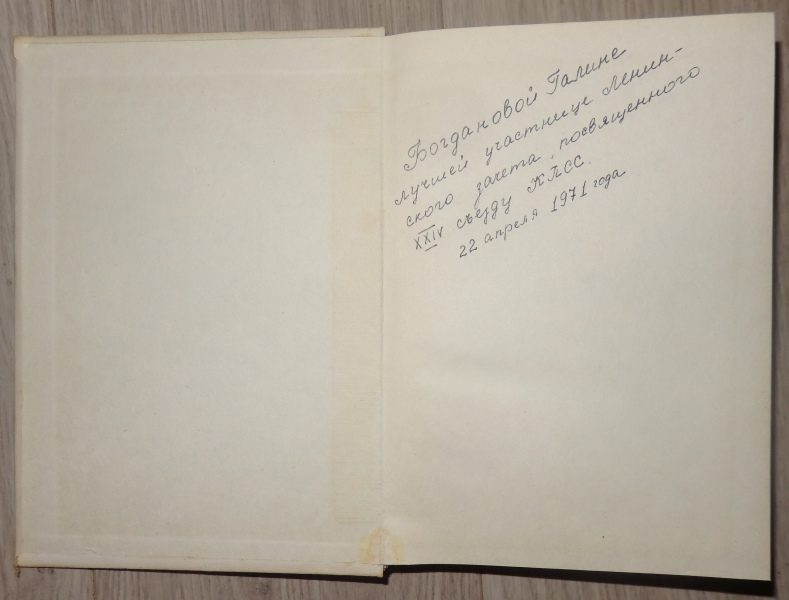 Богдановой Галине
лучшей участнице Ленин-
ского зачета, посвященного
XXIV съезду КПСС.
22 апреля 1971 года